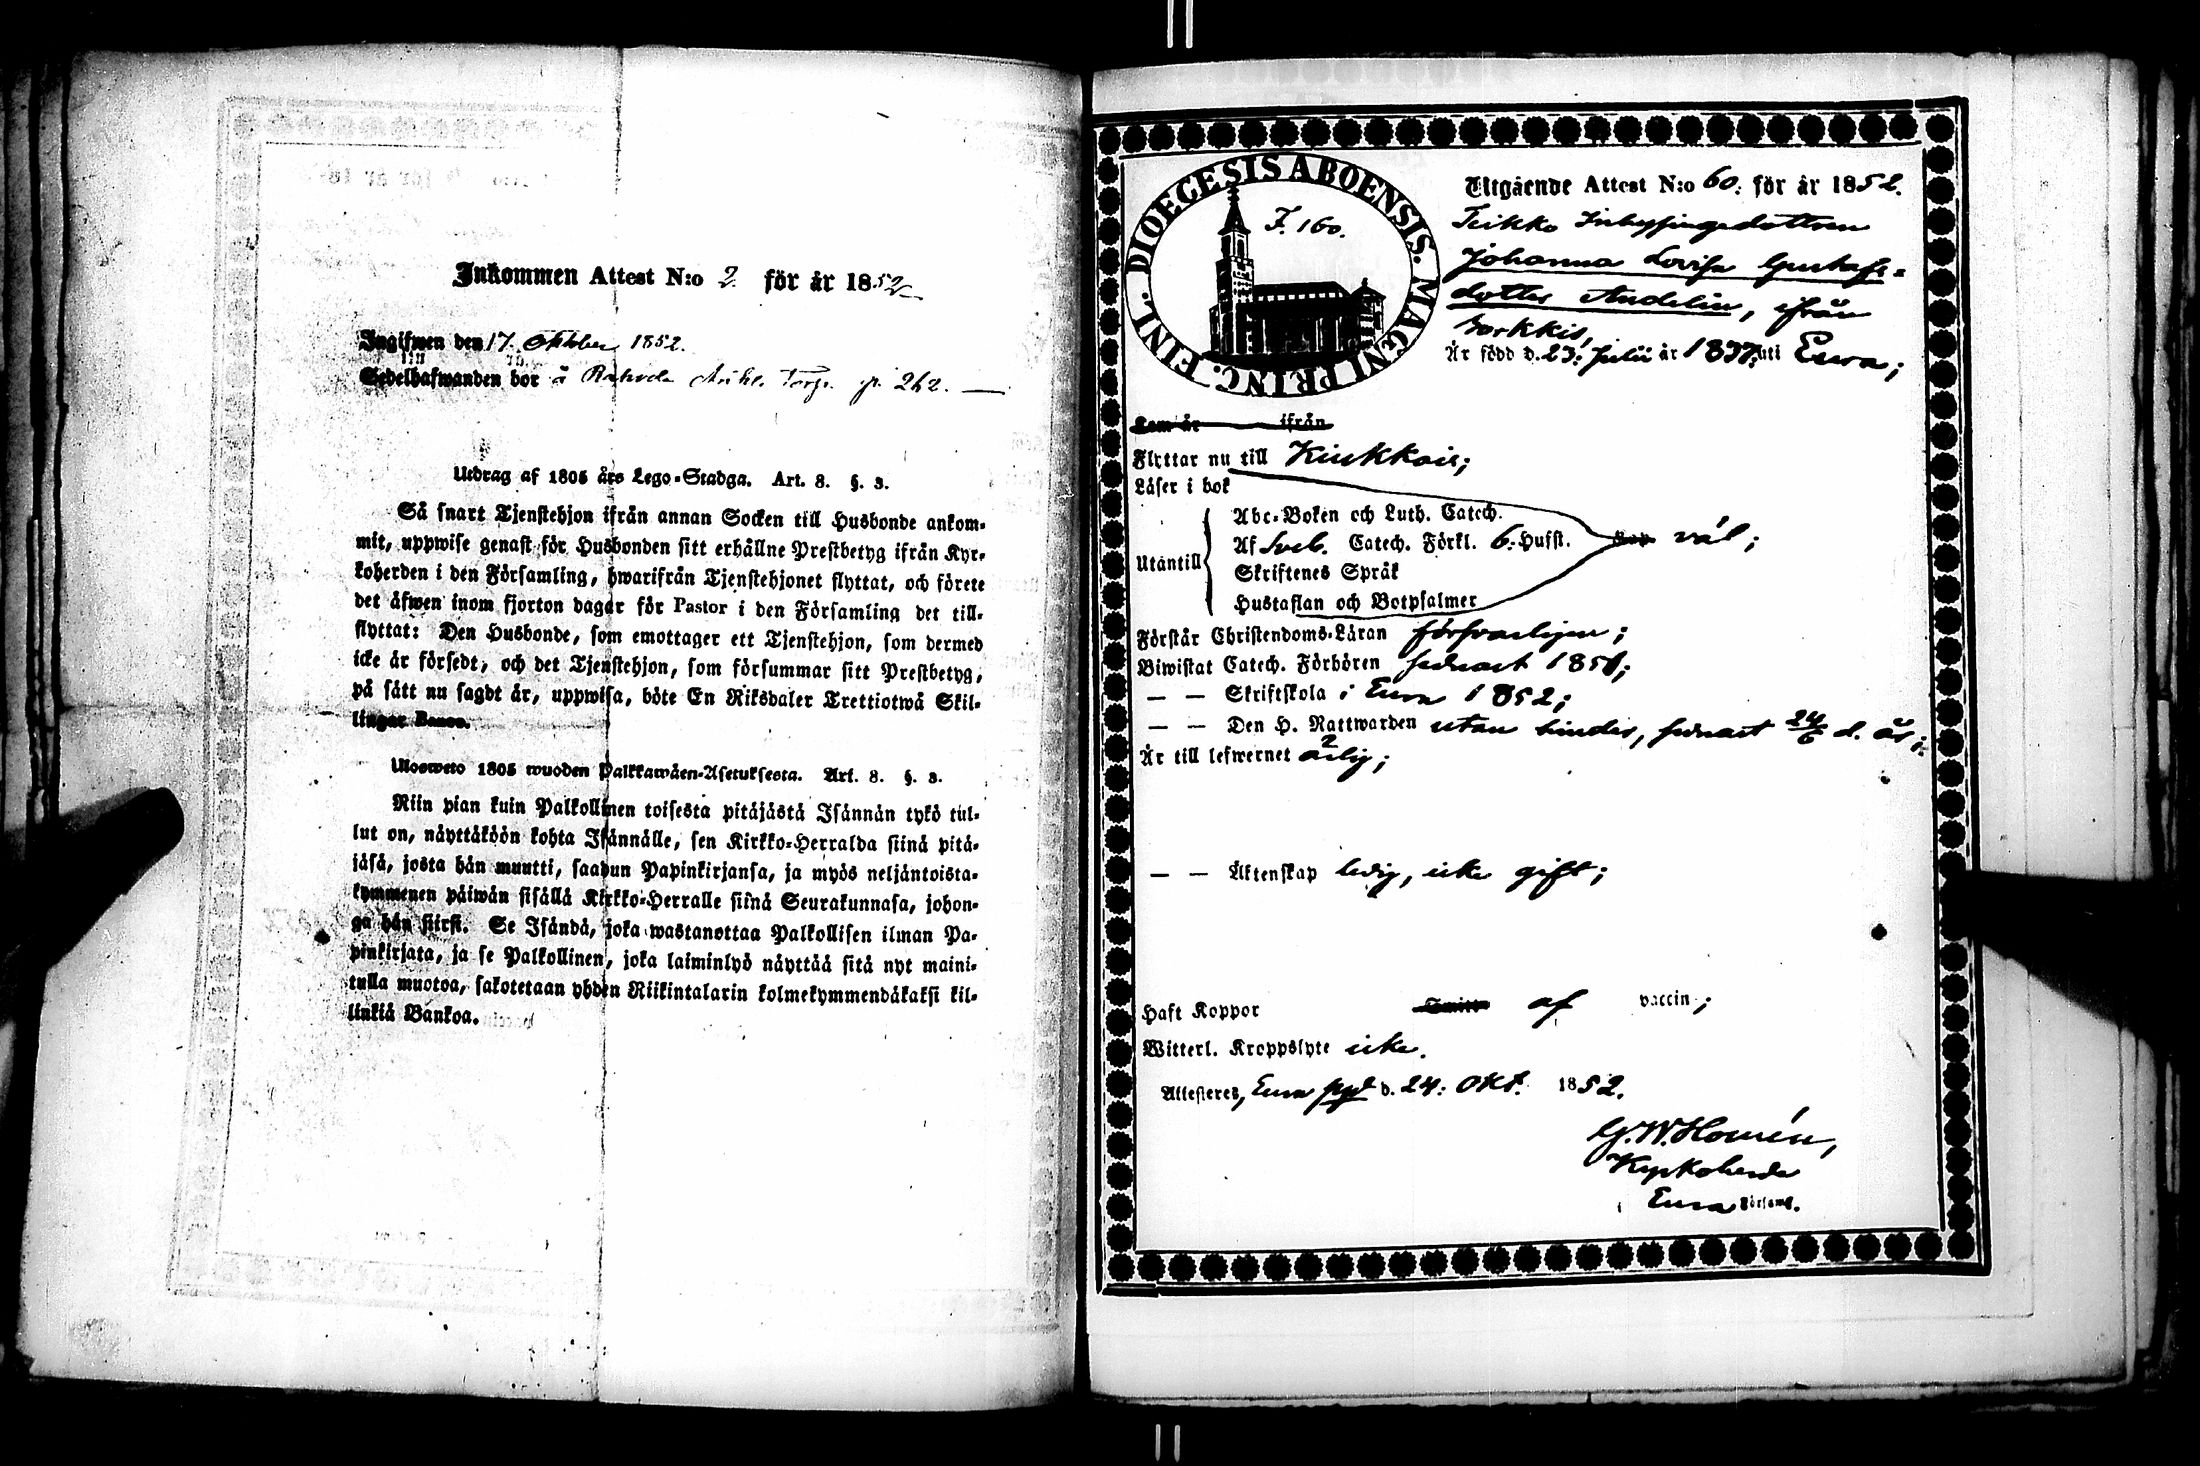 Inkommen Attest N:o 2. för år 1852
Ingifwen den 17. Oktober 1852.
Sedelhafwanden bor å p. 262. —
Utdrag af 1805 års Lego-Stadga. Art. 8. §. 3.
Så snart Tjenstehjon ifrån annan Socken till Husbonde ankom-
mit, uppwise genast för Husbonden sitt erhållne Prestbetyg ifrån Kyr-
koherden i den Församling, hwarifrån Tjenstehjonet flyttat, och förete
det äfwen inom fjorton dagar för Pastor i den Församling det till-
flyttat: Den Husbonde, som emottager ett Tjenstehjon, som dermed
icke är försedt, och det Tjenstehjon, som försummar sitt Prestbetyg,
på sätt nu sagdt är, uppwisa, böte En Riksdaler Trettiotwå Skil-
lingar Banco.
Ulosweto 1805 wuoden Palkkawäen-Asetuksesta. Art. 8. §. 3.
Niin pian kuin Palkollinen toisesta pitäjästä Isännän tykö tul-
lut on, näyttäköön kohta Isännälle, sen Kirkko-Herralda siinä pitä-
jäsä, josta hän muutti, saadun Papinkirjansa, ja myös neljäntoista-
kymmenen päiwän sisällä Kirkko-Herralle siinä Seurakunnasa, johon-
ga hän siirst. Se Isändä, joka wastanottaa Palkollisen ilman Pa-
pinkirjata, ja se Palkollinen, joka laiminlyö näyttää sitä nyt maini-
tulla muotoa, sakotetaan yhden Riikintalarin kolmekymmendäkaksi kil-
linkiä Bankoa.
DIOECESIS ABOENSIS. MAGNI PRINC. FINL.
F. 160.
Utgående Attest N:o 60: för år 1852.
Inhysingsdottren
Johanna Lovisa Gustafs-
dotter Andelin, ifrån
Sorkkis,
Är född d. 23: Julii år 1837. uti Eura;
Kom år ifrån
Flyttar nu till Kiukkois;
Läser i bok
Abc-Boken och Luth. Catech.
Utantill Af Sveb. Catech. Förkl. 6: Hufst. väl;
Skriftenes Språk
Hustaflan och Botpsalmer
Förstår Christendoms-Läran försvarligen;
Biwistat Catech. Förhören sednast 1851;
— — Skriftskola i Eura 1852;
— — Den H. Nattwarden utan hinder, sednast 24/6 d. år;
Är till lefwernet ärlig;
— — Äktenskap ledig, icke gift;
Haft Koppor af vaccin;
Witterl. Kroppslyte icke.
Attesteres, Eura pgd d. 24: Okt. 1852.
G. W. Homén,
Kyrkoherde
Eura Församl.